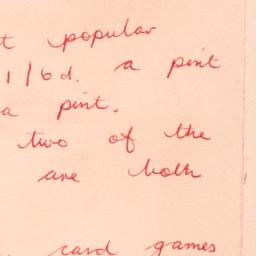 t popular
1/6d. a pint
a pint.
two of the
are both
card games